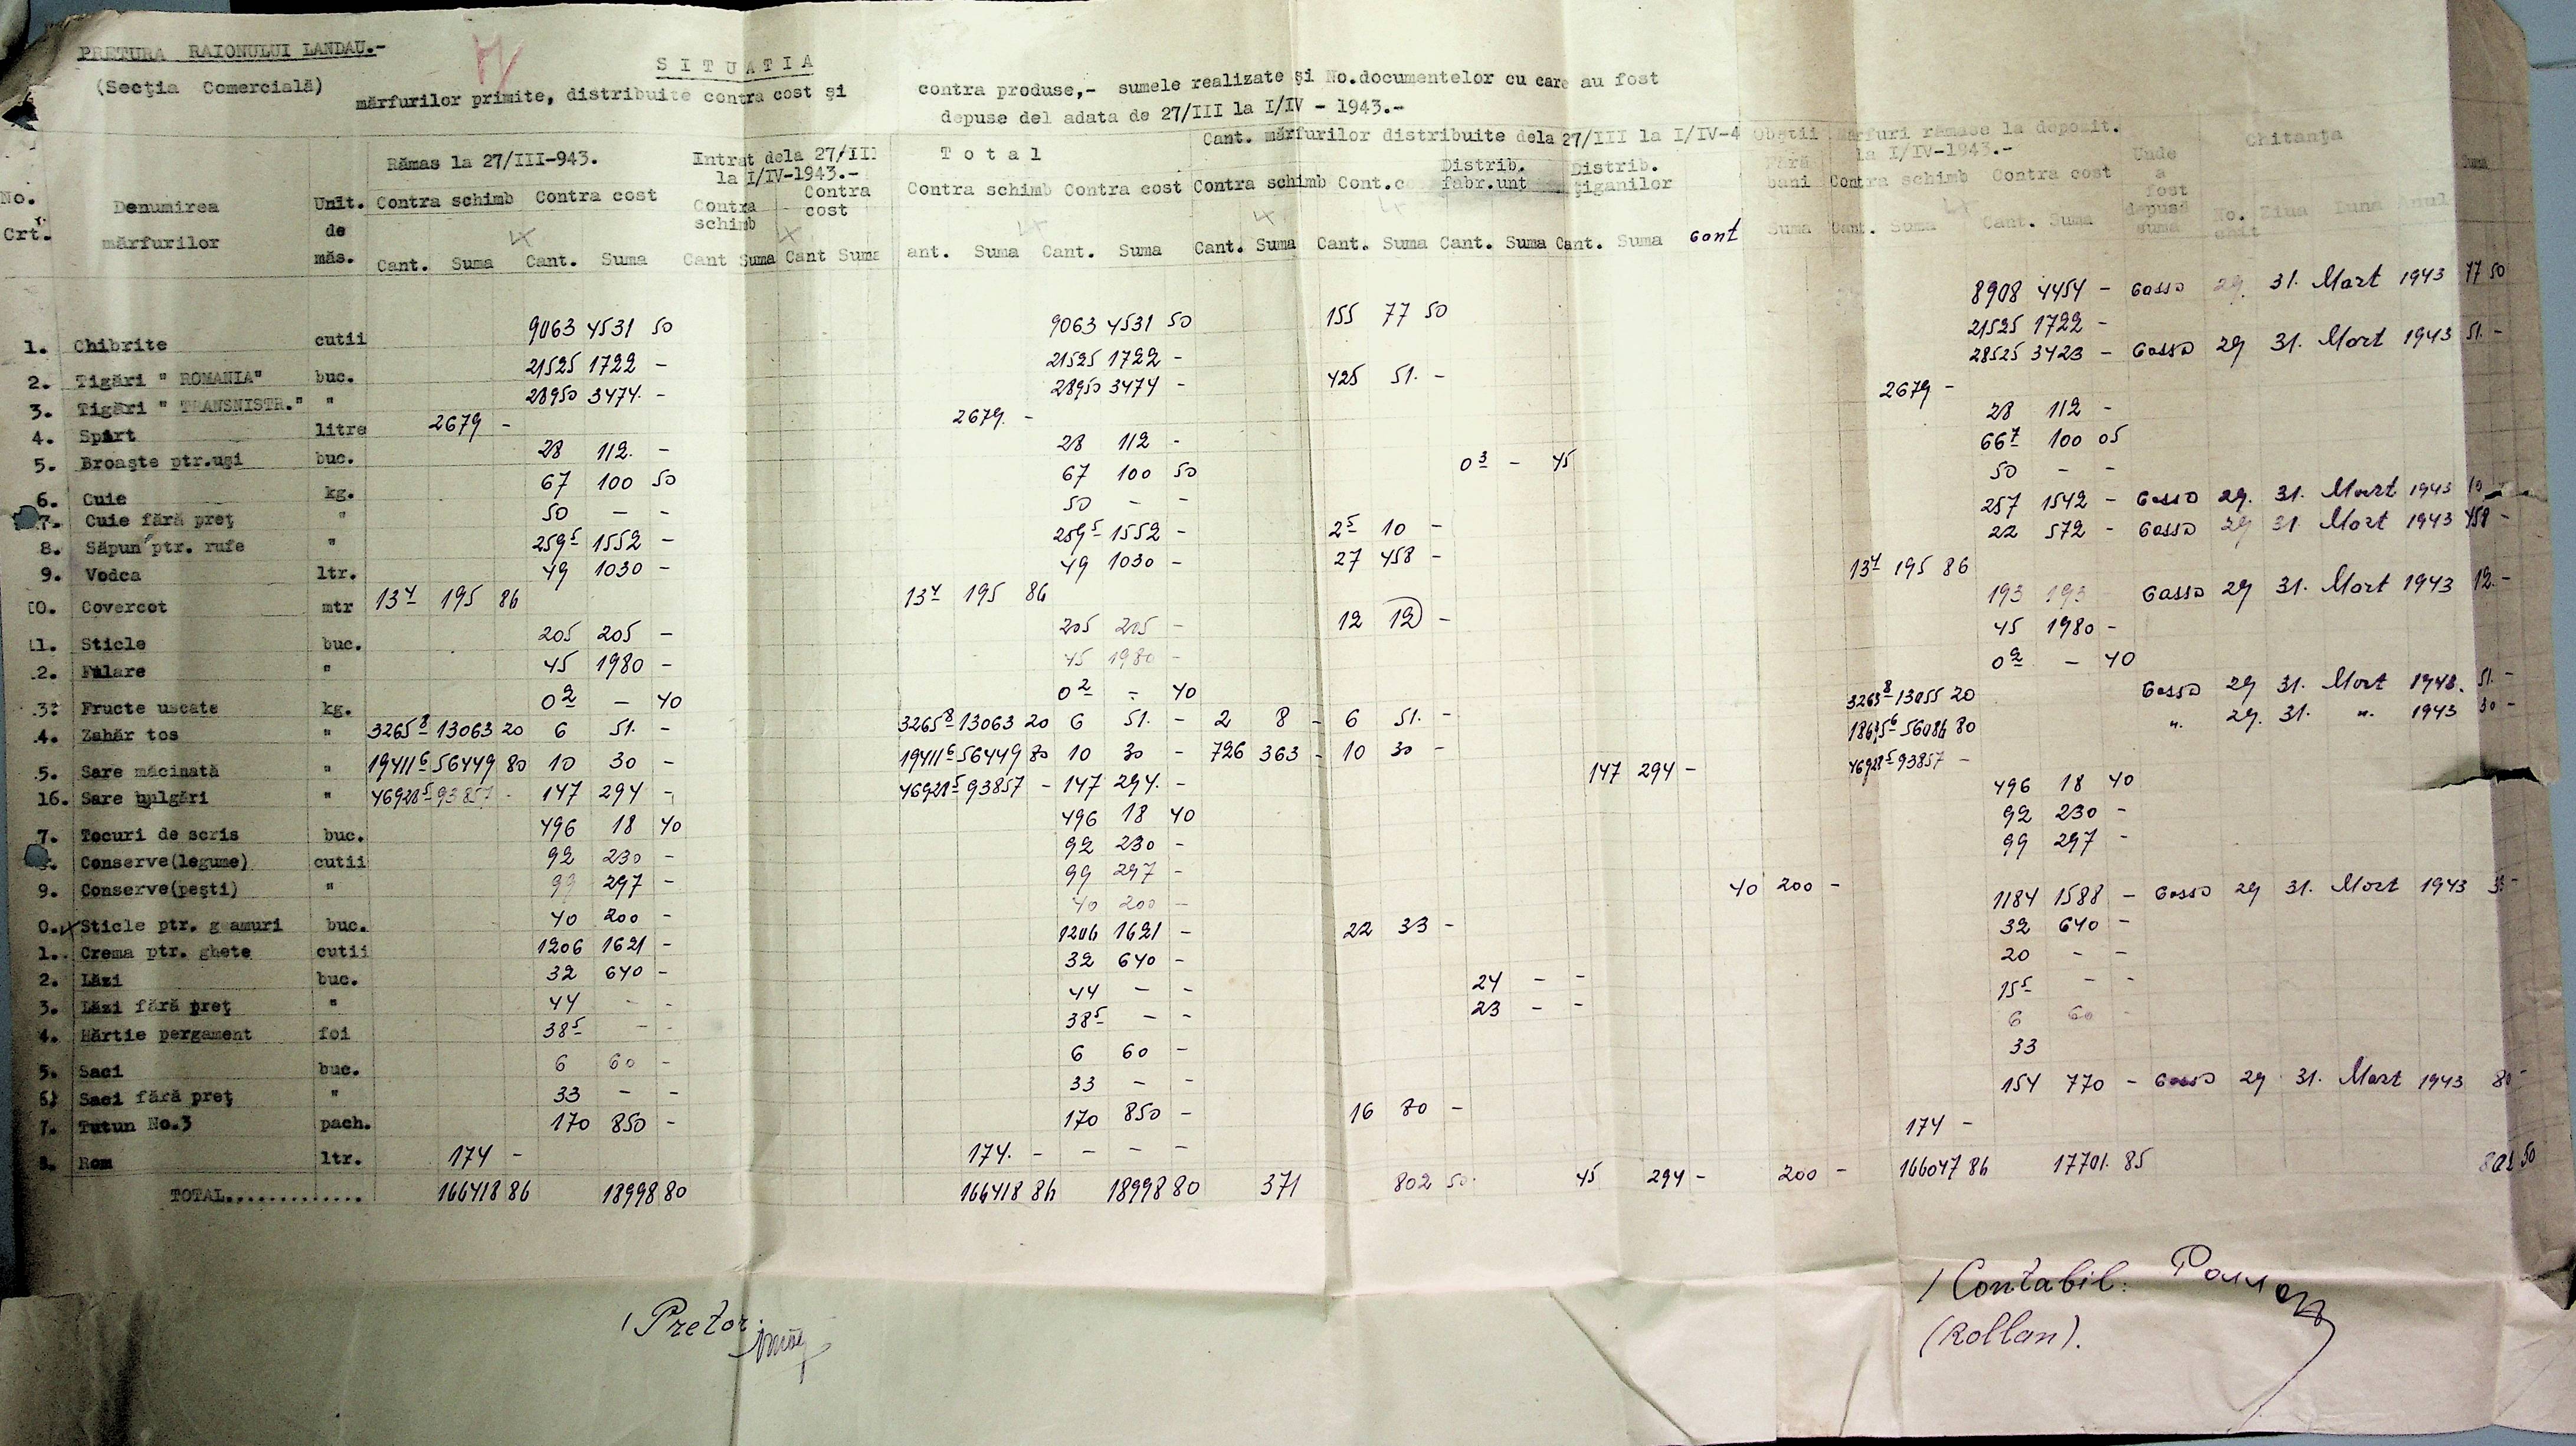 PRETURA RAIONULUI LANDAU.-
(Secţia Comercială)
SITUATIA
mărfurilor primite, distribuite contra cost şi contra produse,- sumele realizate şi No.documentelor cu care au fost
depuse del adata de 27/III la I/IV - 1943.-
No. Crt. Denumirea mărfurilor Unit. de măs. Rămas la 27/III-943. Intrat dela 27/III la I/IV-1943.- Total Cant. mărfurilor distribuite dela 27/III la I/IV-4 Obştii Mărfuri rămase la depozit. la I/IV-1943.- Unde a fost depusă suma Chitanţa Suma
Contra schimb Contra cost Contra schimb Contra cost Contra schimb Contra cost Contra schimb Cont.c Distrib. fabr.unt Distrib. ţiganilor Fără bani Contra schimb Contra cost No. chit Ziua Luna Anul
Cant. Suma Cant. Suma Cant Suma Cant Suma ant. Suma Cant. Suma Cant. Suma Cant. Suma Cant. Suma Cant. Suma Cant Suma Cant. Suma Cant. Suma
1. Chibrite cutii 9063 4531 50 9063 4531 50 155 77 50 8908 4454 - Casso 29. 31. Mart 1943 77 50
2. Tigări " ROMANIA" buc. 21525 1722 - 21525 1722 - 21525 1722 -
3. Tigări " TRANSNISTR." " 28950 3474. - 28950 3474 - 425 51. - 28525 3423 - Casso 29 31. Mart 1943 51. -
4. Spirt litre 2679 - 2679. - 2679 -
5. Broaşte ptr.uşi buc. 28 112. - 28 112 - 28 112 -
6. Cuie kg. 67 100 50 67 100 50 03 - 45 667 100 05
7. Cuie fără preţ " 50 - - 50 - - 50 - -
8. Săpun ptr. rufe " 2595 1552 - 2595 1552 - 25 10 - 257 1542 - Casso 29. 31. Mart 1943 10
9. Vodca ltr. 49 1030 - 49 1030 - 27 458 - 22 572 - Casso 29 31. Mart 1943 458 -
10. Covercot mtr 134 195 86 134 195 86 134 195 86
11. Sticle buc. 205 205 - 205 205 - 12 12 - 193 193 Casso 29 31. Mart 1943 12. -
.2. Filare " 45 1980 - 45 1980 - 45 1980 -
.3. Fructe uscate kg. 02 - 40 02 - 40 02 - 40
.4. Zahăr tos " 32658 13063 20 6 51. - 32658 13063 20 6 51. - 2 8 - 6 51. - 32638 13055 20 Casso 29 31. Mart 1943. 51. -
.5. Sare măcinată " 194116 56449 80 10 30 - 194116 56449 80 10 30 - 726 363 - 10 30 - 186856 56086 80 ". 29. 31. ". 1943 30 -
16. Sare bulgări " 469285 93857 - 147 294 - 469285 93857 - 147 294. - 147 294 - 469285 93857 -
7. Tocuri de scris buc. 496 18 40 496 18 40 496 18 40
Conserve(legume) cutii 92 230 - 92 230 - 92 230 -
9. Conserve(peşti) " 99 297 - 99 297 - 99 297 -
0. Sticle ptr. geamuri buc. 40 200 - 40 200 - 40 200 -
1. Crema ptr. ghete cutii 1206 1621 - 1206 1621 - 22 33 - 1184 1588 - Casso 29 31. Mart 1943 33 -
2. Lăzi buc. 32 640 - 32 640 - 32 640 -
3. Lăzi fără preţ " 44 - - 44 - - 24 - - 20 - -
4. Hărtie pergament foi 385 - - 385 - - 23 - - 155 - -
5. Saci buc. 6 60 - 6 60 - 6 60 -
6. Saci fără preţ " 33 - - 33 - - 33
7. Tutun No.3 pach. 170 850 - 170 850 - 16 80 - 154 770 - Casso 29 31. Mart 1943 80 -
8. Rom ltr. 174 - 174. - - - - 174 -
TOTAL............. 166418 86 18998 80 166418 86 18998 80 371 802 50 45 294 - 200 - 166047 86 17701. 85 802 50
/ Pretor.
/ Contabil:
(Rollan).